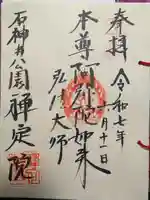 奉拝
令和七年
六月十一日
本尊阿弥陀如来
弘法大師
石神井公園
禅定院